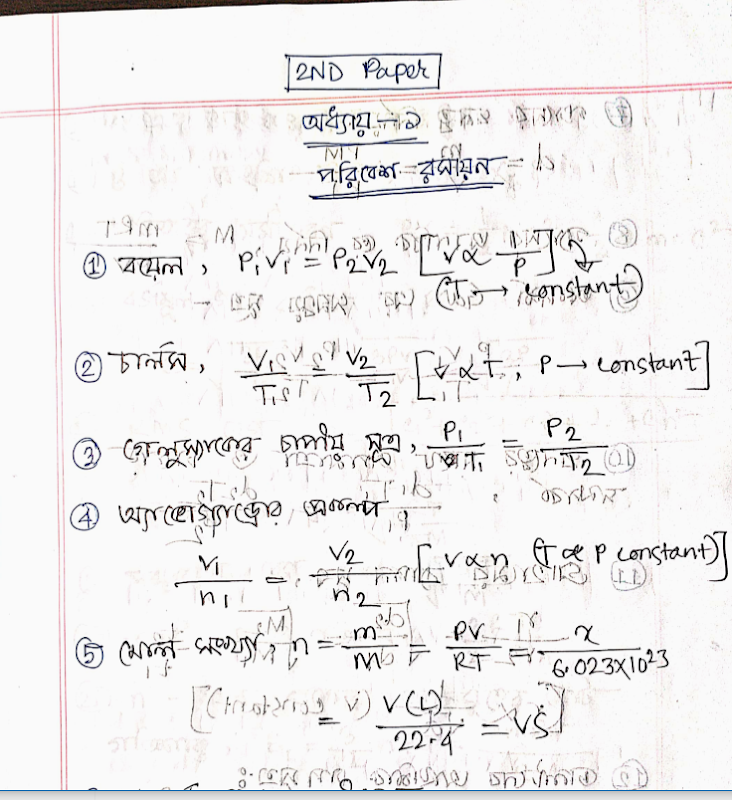 2ND Paper
অধ্যায় - ১
পরিবেশ রসায়ন
① বয়েল, P₁V₁ = P₂V₂ [V ∝ 1/P] (T → constant)
② চার্লস, V₁/T₁ = V₂/T₂ [V ∝ T, P → constant]
③ গেলুস্যাকের চাপীয় সূত্র, P₁/T₁ = P₂/T₂
④ অ্যাভোগ্যাড্রোর প্রকল্প,
V₁/n₁ = V₂/n₂ [V ∝ n (T P constant)]
⑤ মোল সংখ্যা, n = m/M = PV/RT = x/6.023×10²³
= V(L)/22.4 = VS